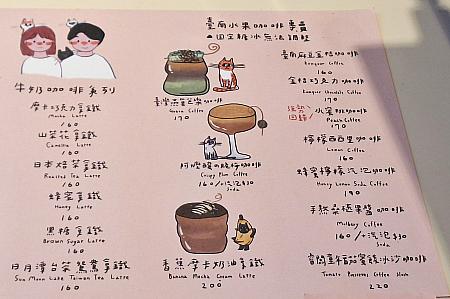 牛奶咖啡系列
摩卡巧克力拿鐵
Mocha Latte
160
山茶花拿鐵
Camellia Latte
160
日本焙茶拿鐵
Roasted Tea Latte
160
蜂蜜拿鐵
Honey Latte
160
黑糖拿鐵
Brown Sugar Latte
160
日月潭台茶鴛鴦拿鐵
Sun Moon Lake Taiwan Tea Latte
160
臺南水果咖啡專賣
固定糖冰無法調整
咖啡
Guava Coffee
170
咖啡
Crispy Plum Coffee
160/+汽泡$30
香蕉摩卡奶油拿鐵
Banana Mocha Cream Latte
200
臺南麻豆金桔咖啡
Kumquat Coffee
160
金桔巧克力咖啡
Kumquat Chocolate Coffee
170
回歸!
水蜜桃咖啡
Peach Coffee
170
檸檬西西里咖啡
Lemon Coffee
160
蜂蜜檸檬汽泡咖啡
Honey Lemon Soda Coffee
190
手熬桑椹果醬咖啡
Mulberry Coffee
160/+汽泡$30
Soda
番茄蜜餞冰沙咖啡
Tomato Preserves Coffee Slush
220